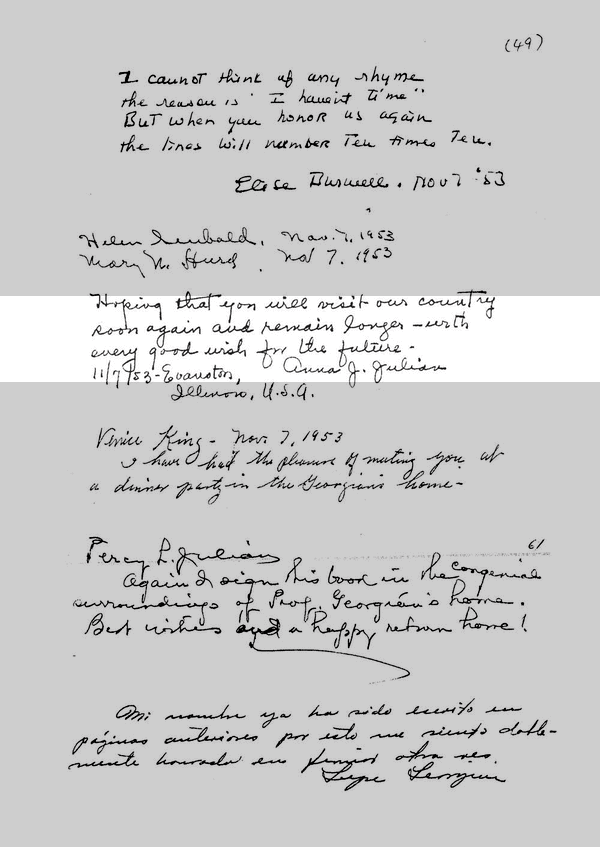 (49)
I cannot think of any rhyme
the reason is "I haven't time"
But when you honor us again
the lines will number Ten times Ten.
Elise Burwell. Nov 7 '53
Helen, Nov. 7, 1953
Mary N. Hurd. Nov 7. 1953
Hoping that you will visit our country
soon again and remain longer - with
every good wish for the future -
11/7/53 - Evanston, Anna J. Julian
Illinois, U.S.A.
Venice King - Nov. 7, 1953
I have had the pleasure of meeting you at
a dinner party in the Georgian's home -
61
Percy L. Julian
Again I sign his book in the congenial
surroundings of Prof. Georgian's home.
Best wishes and a happy return home!
Mi nombre ya ha sido escrito en
páginas anteriores por esto me siento doble-
mente honrada en firmar otra ves.
Lupe Georgian